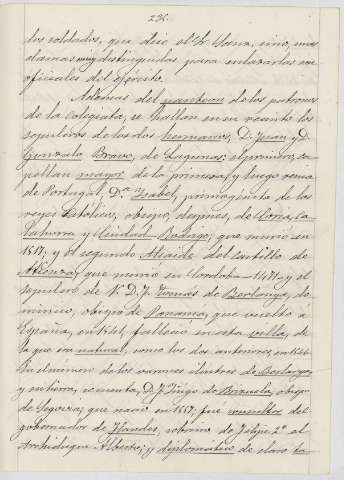 236.
dos soldados, que dice el Sr. Saenz, sino, unas
damas muy distinguidas para enlazarlas con
oficiales del ejército.
Ademas del panteon de los patronos
de la Colegiata, se hallan en su recinto los
sepulcros de los dos hermanos, D. Juan y D.
Gonzalo Bravo, de Lagunas: el primero, ca-
pellan mayor de la princesa, y luego reina
de Portugal, D.ª Isabel, primogénita de los
reyes Católicos, obispo, despues, de Coria, Ca-
lahorra y Ciudad Rodrigo, que murió en
1517; y el segundo Alcaide del castillo de
Atienza, que murió en Cordoba - 1471 - y el
sepulcro de D. F. Tomás de Berlanga, do-
minico, obispo de Panama, que vuelto á
España, en 1541, falleció en esta villa, de
la que era natural, como los dos anteriores, en
En el número de los varones ilustres de Berlanga,
y su tierra, se cuenta, D. Iñigo de Brizuela, obispo
de Segovia, que nació en 1557, fue consultor del
gobernador de Flandes, sobrino de Felipe 2º el
Archiduque Alberto; y diplomático de claro ta-